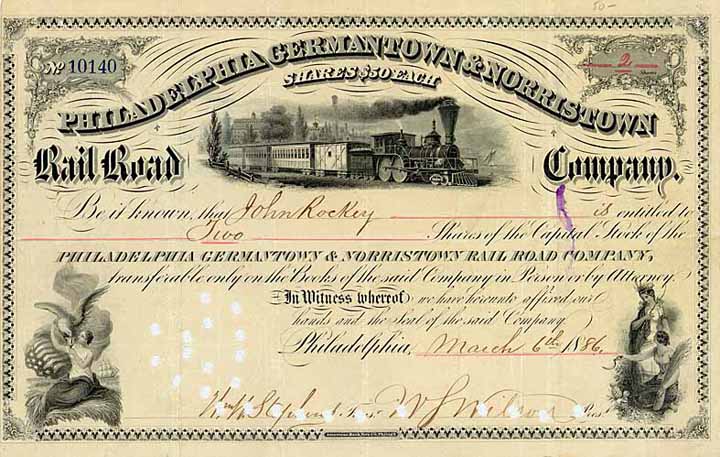 50-
No 10140
2
Shares
PHILADELPHIA GERMANTOWN & NORRISTOWN
SHARES $50 EACH
Rail Road Company.
Be it known, that John Rockey is entitled to
Two Shares of the Capital Stock of the
PHILADELPHIA GERMANTOWN & NORRISTOWN RAIL ROAD COMPANY,
transferable only on the Books of the said Company in Person or by Attorney.
In Witness whereof we have hereunto affixed our
hands and the Seal of the said Company.
Philadelphia, March 6th 1886.
W S Wilson Prest
American Bank Note Co. Philada.